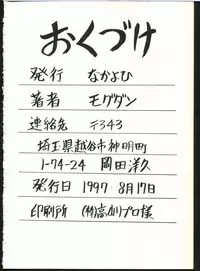 おくづけ
発行 なかよひ
著者 モグダン
連絡先 〒343
埼玉県越谷市神明町
1-74-24 岡田洋久
発行日 1997 8月17日
印刷所 (株)高川プロ様